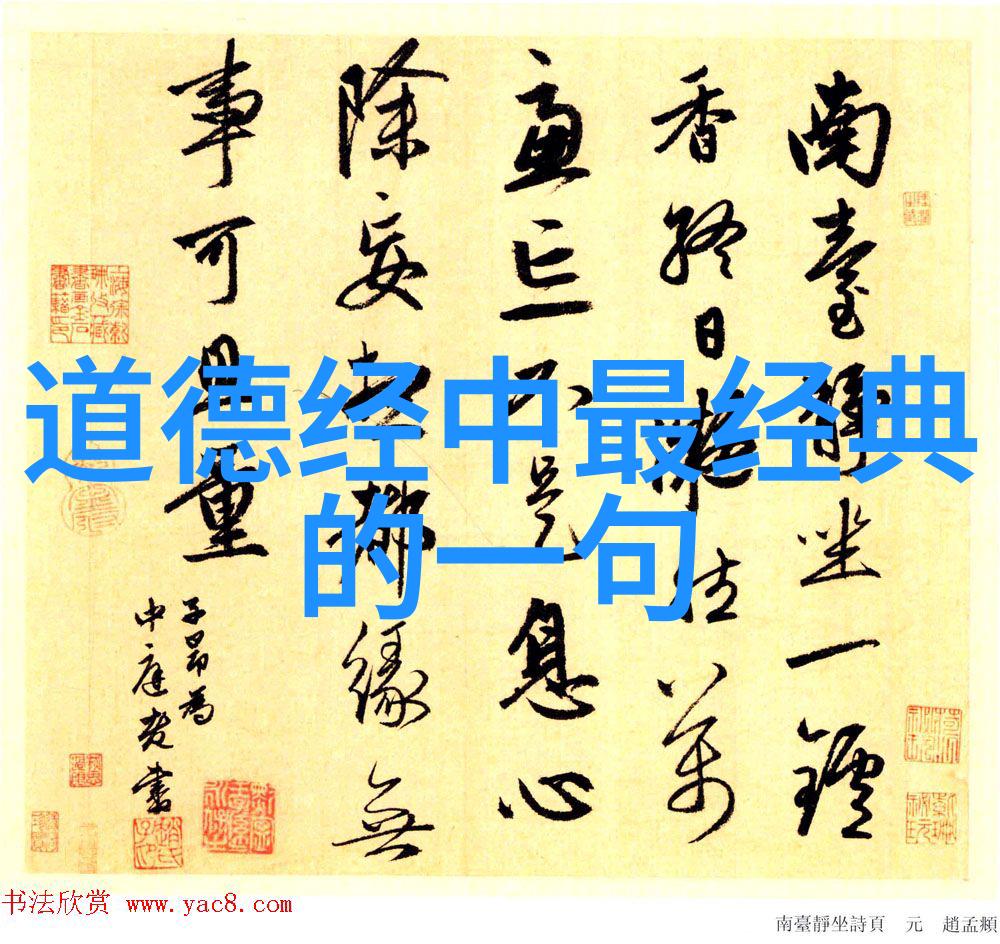 道德经中最经典
的一句
南臺靜坐一鑪
香終日萬
慮亡不是息心
除妄想都緣無
事可量
子昂為
中庭老書
书法欣赏 www.yac8.com
南臺靜坐詩頁 元 趙孟頫